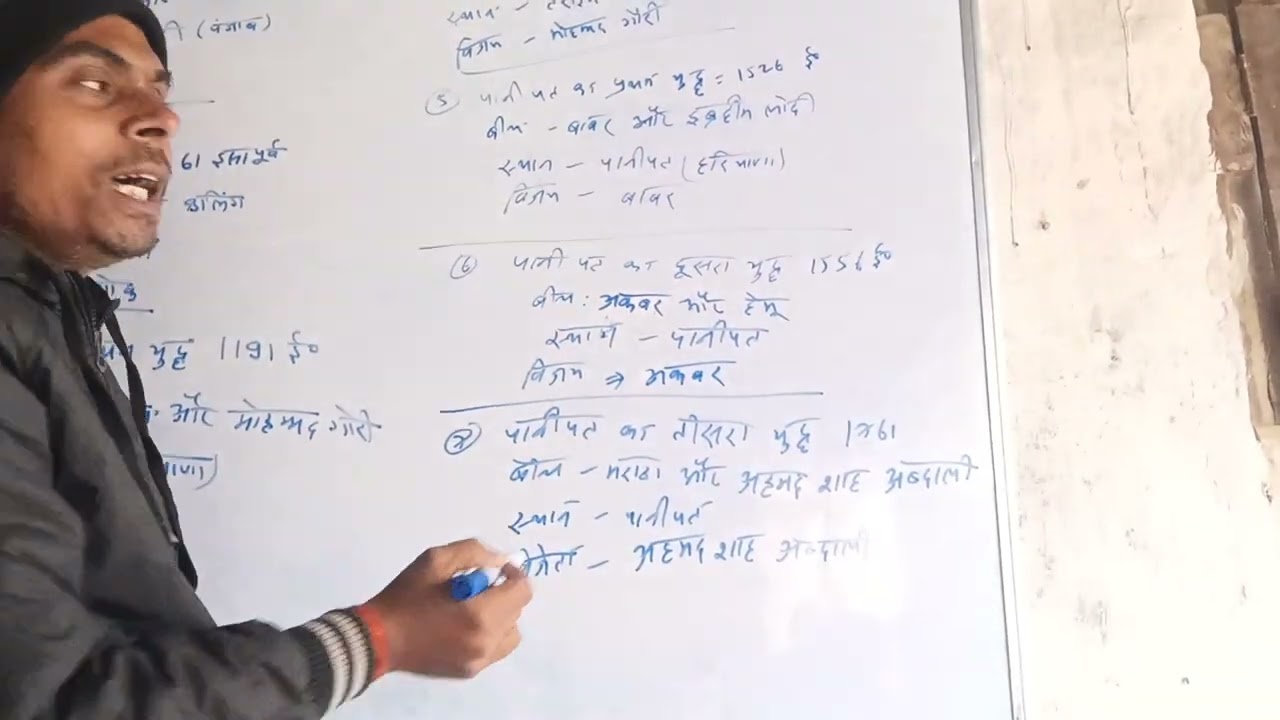 (पंजाब)
61 ईसापूर्व
कलिंग
युद्ध 1191 ई०
और मोहम्मद गोरी
स्थान -
विजय - मोहम्मद गौरी
5 पानीपत का प्रथम युद्ध = 1526 ई०
बीच - बाबर और इब्राहीम लोदी
स्थान - पानीपत (हरियाणा)
विजय - बाबर
6 पानीपत का दूसरा युद्ध 1556 ई०
बीच : अकबर और हेमू
स्थान - पानीपत
विजय ⇒ अकबर
7 पानीपत का तीसरा युद्ध 1761
बीच - मराठा और अहमद शाह अब्दाली
स्थान - पानीपत
विजेता - अहमद शाह अब्दाली